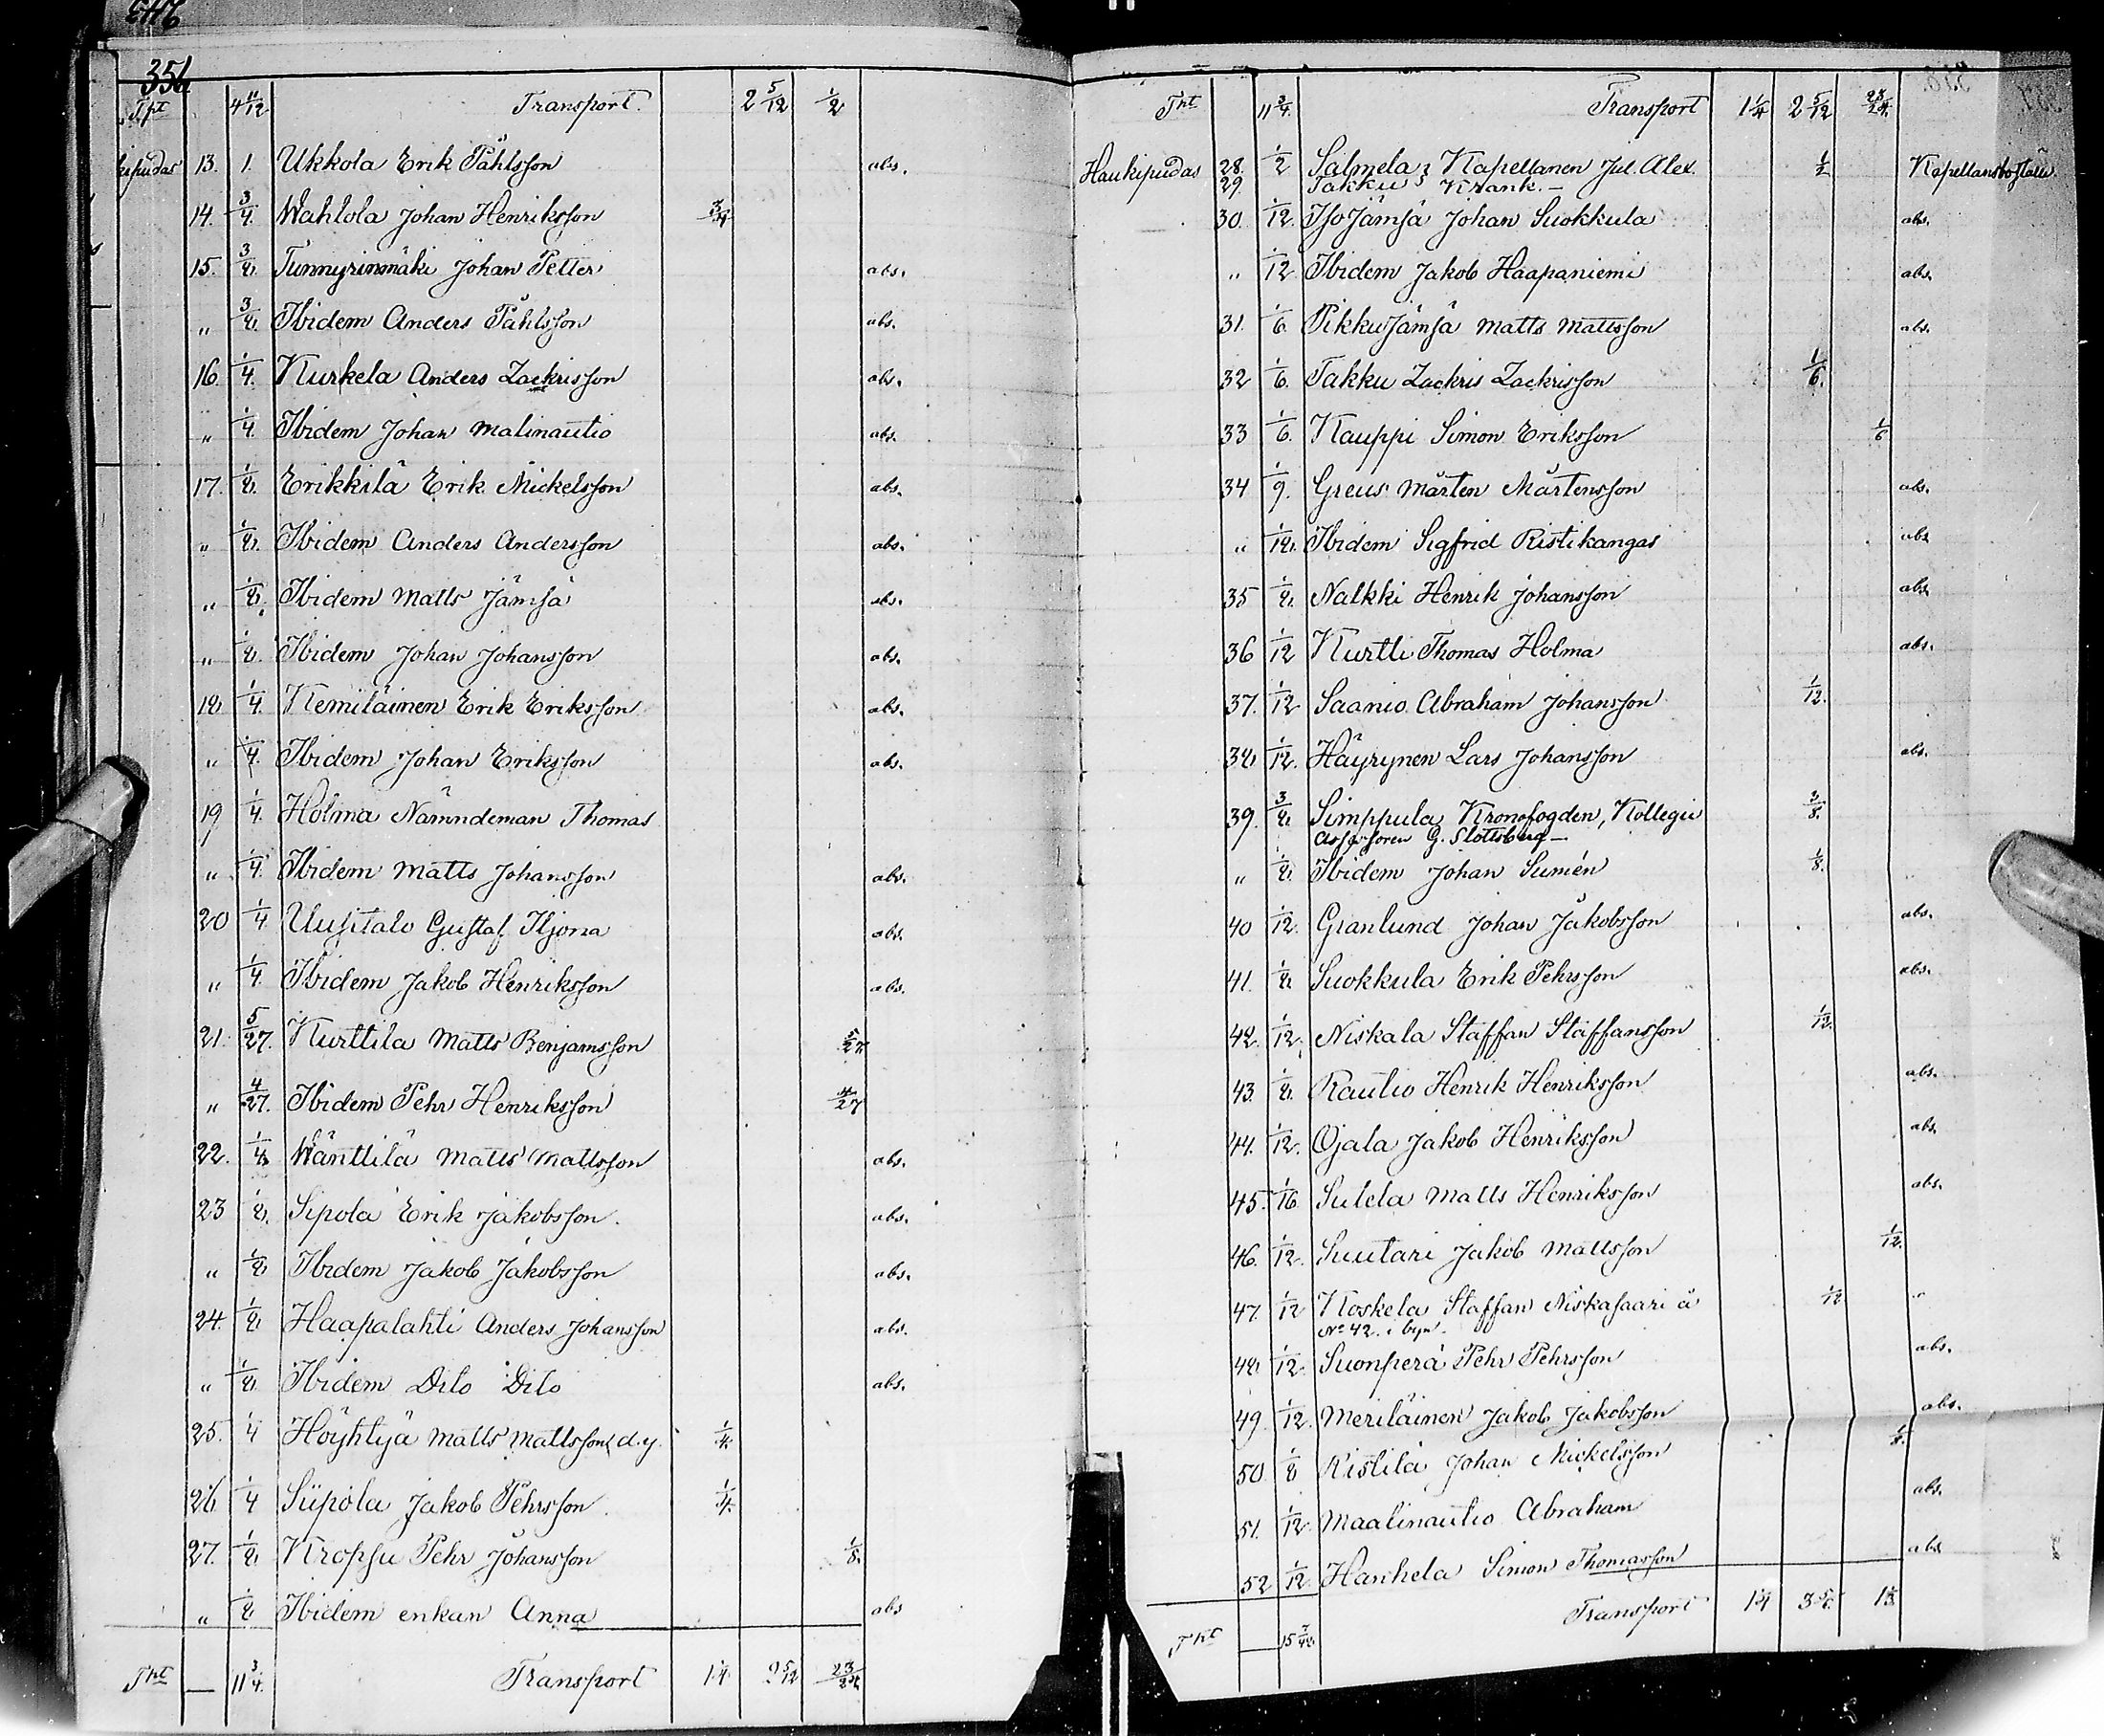 356
Tpt 4 11/12 Transport. 2 5/12 1/2
kipudas 13. 1. Ukkola Erik Påhlsson abs.
14. 3/4. Wahlola Johan Henriksson 3/4
15. 3/8. Tunnyrinmäki Johan Petter abs.
" 3/8. Ibidem Anders Påhlsson abs.
16. 1/4. Kurkela Anders Zackrisson abs.
" 1/4. Ibidem Johan Malinautio abs.
17. 1/8. Erikkilä Erik Mickelsson abs.
" 1/8. Ibidem Anders Andersson abs.
" 1/8. Ibidem Matts Jämsä abs.
" 1/8. Ibidem Johan Johansson abs.
18. 1/4. Kemiläinen Erik Eriksson abs.
" 1/4. Ibidem Johan Eriksson abs.
19 1/4. Holma Nämndeman Thomas
" 1/4. Ibidem Matts Johansson abs.
20 1/4. Uusitalo Gustaf Iljona abs.
" 1/4. Ibidem Jakob Henriksson abs.
21. 5/27. Kurttila Matts Benjamsson 5/27.
" 4/27. Ibidem Pehr Henriksson 4/27
22. 1/4. Wänttilä Matts Mattsson abs.
23 1/8. Sipola Erik Jakobsson. abs.
" 1/8. Ibidem Jakob Jakobsson abs.
24. 1/8 Haapalahti Anders Johansson abs.
" 1/8. Ibidem Dito Dito abs.
25. 1/4 Höyhtyä Matts Mattsson d.y. 1/4.
26 1/4 Siipola Jakob Pehrsson. 1/4.
27. 1/8. Kropsu Pehr Johansson 1/8.
" 1/8 Ibidem enkan Anna abs
Tpt — 11 3/4. Transport 1 1/4. 2 5/12 23/24.
Tpt 11 3/4. Transport 1 1/4 2 5/12 23/24.
Haukipudas 28. 1/2 Salmela } Kapellanen Jul. Alex. 1/2 Kapellansboställe.
29. Takku } Krank.—
30. 1/12. Iso Jämsä Johan Suokkula abs.
" 1/12 Ibidem Jakob Haapaniemi abs.
31. 1/6. Pikku Jämsä Matts Mattsson abs.
32 1/6. Takku Zackris Zackrisson 1/6.
33 1/6. Kauppi Simon Eriksson 1/6
34 1/9. Greus Mårten Mårtensson abs.
" 1/18. Ibidem Sigfrid Ristikangas abs
35 1/8. Nalkki Henrik Johansson abs
36 1/12 Kurtti Thomas Holma abs.
37. 1/12 Saanio Abraham Johansson 1/12.
38 1/12. Häyrynen Lars Johansson abs.
39. 3/8 Simppula, Kronofogden, Kollegii 3/8.
Assessoren G. Slottsberg—
" 1/8. Ibidem Johan Sumén 1/8.
40 1/12. Granlund Johan Jakobsson abs.
41. 1/8 Suokkula Erik Pehrsson abs.
42. 1/12. Niskala Staffan Staffansson 1/12.
43. 1/8. Rautio Henrik Henriksson abs.
44. 1/12. Ojala Jakob Henriksson abs.
45. 1/16. Sulela Matts Henriksson abs.
46. 1/12. Suutari Jakob Mattsson 1/12.
47. 1/12 Koskela Staffan Niskasaari å 1/12 "
No 42. i byn.
48 1/12. Suonperä Pehr Pehrsson abs.
49. 1/12. Meriläinen Jakob Jakobsson abs.
50. 1/8 Ristilä Johan Mickelsson 1/8.
51. 1/12. Maalinautio Abraham abs.
52 1/12 Hankela Simon Thomasson abs
Tpt — 15 7/48. Transport 1 1/4